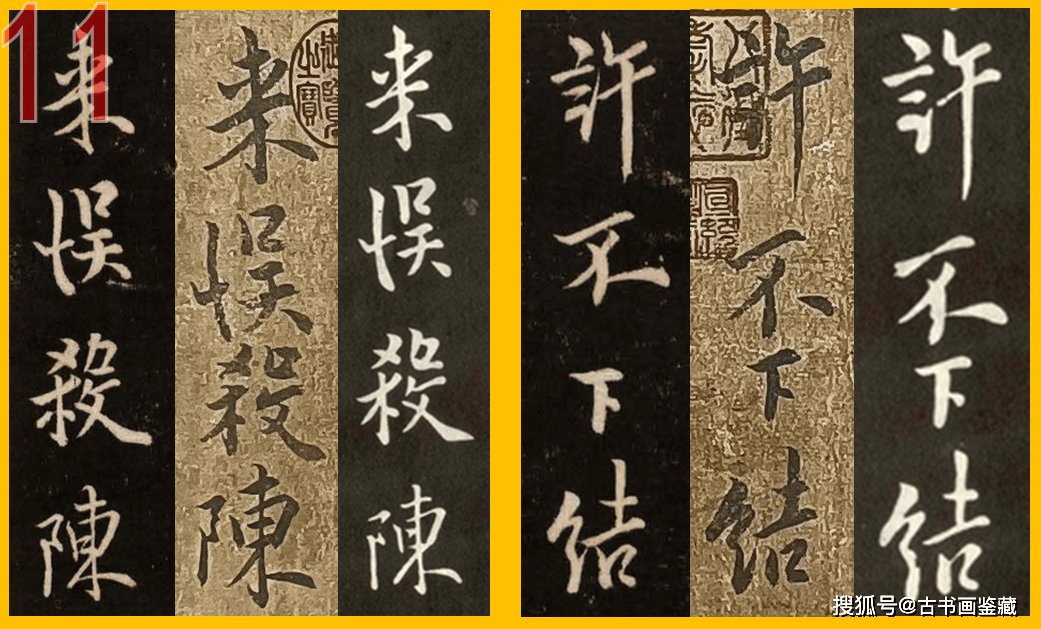 11
来
误
殺
陳
来
误
殺
陳
来
误
殺
陳
許
不
下
结
許
不
下
结
許
不
下
结
搜狐号@古书画鉴藏